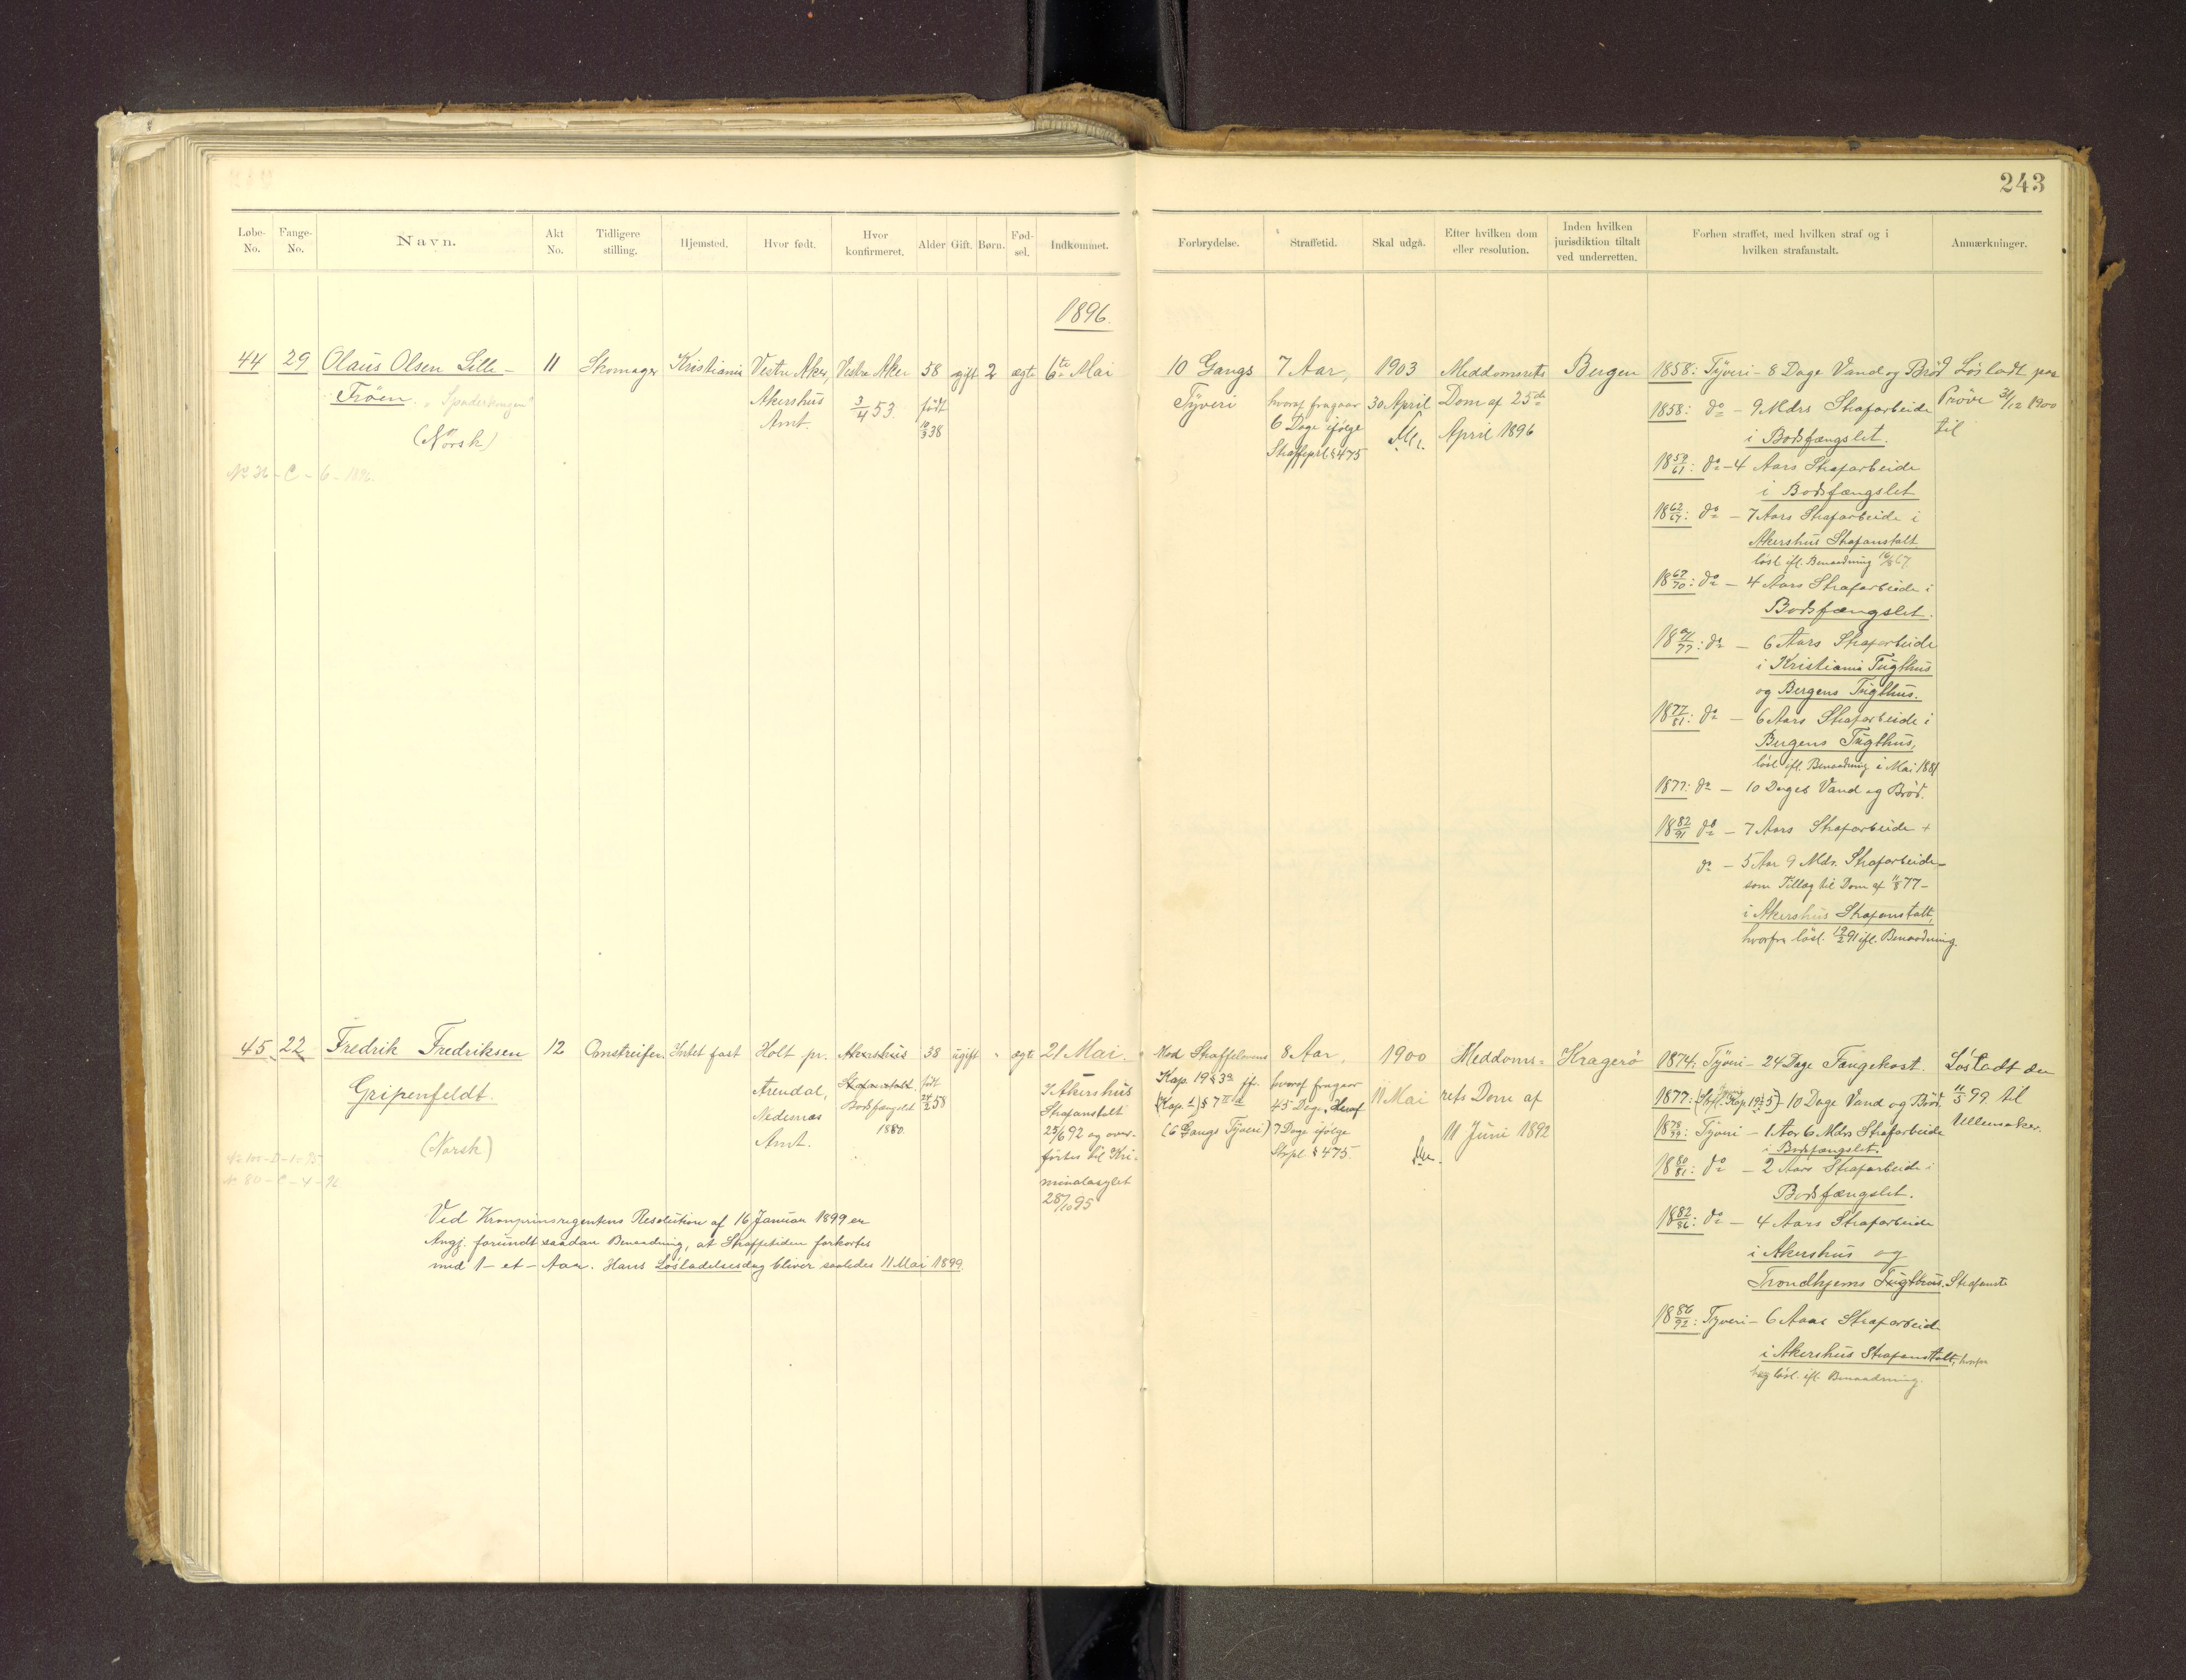 243
Løbe-No.
Fange-No.
Navn.
Akt No.
Tidligere stilling.
Hjemsted.
Hvor født.
Hvor konfirmeret.
Alder
Gift.
Børn.
Fød-sel.
Indkommet.
Forbrydelse.
Straffetid.
Skal udgå.
Efter hvilken dom eller resolution.
Inden hvilken jurisdiktion tiltalt ved underretten.
Forhen straffet, med hvilken straf og i hvilken strafanstalt.
Anmærkninger.
1896.
44
29
Olaus Olsen Lille-
Frøen.
(Norsk)
No 36 - C - 6 - 1896.
11
Skomager
Kristiania
Vestre Aker,
Akershus
Amt.
Vestre Aker
3/4 53.
58
født
10/3 38
gift
2
ægte
6te Mai
10 Gangs
Tyveri
7 Aar,
hvoraf fragaar
6 Dage ifølge
Straffeprl. § 475
1903
30 April
Meddomsrets
Dom af 25de
April 1896
Bergen
1858: Tyveri - 8 Dage Vand og Brød
1858: do - 9 Mdrs Strafarbeide
i Bodsfængslet.
18 59/61: do - 4 Aars Strafarbeide
i Bodsfængslet
18 62/67: do - 7 Aars Strafarbeide i
Akershus Strafanstalt
løsl. ifl. Benaadning 16/8 67.
18 67/70: do - 4 Aars Strafarbeide i
Bodsfængslet.
18 71/77: do - 6 Aars Strafarbeide
i Kristiania Tugthus
og Bergens Tugthus.
18 77/81: do - 6 Aars Strafarbeide i
Bergens Tugthus,
løsl. ifl. Benaadning i Mai 1881
1877: do - 10 Dages Vand og Brød.
18 82/91 do - 7 Aars Strafarbeide +
do - 5 Aar 9 Mdr. Strafarbeide -
som Tillæg til Dom af 11/8 77 -
i Akershus Strafanstalt,
hvorfra løsl. 19/2 91 ifl. Benaadning.
Løsladt paa
Prøve 31/12 1900
til
45
22
Fredrik Fredriksen
Gripenfeldt.
(Norsk)
No 100 - D - 1 - 95
No 80 - C - 4 - 96
12
Omstreifer.
Intet fast
Holt pr.
Arendal,
Nedenæs
Amt.
Akershus
Strafanstalt.
Bodsfængslet
1880.
38
født
24/2 58
ugift
"
ægte
21 Mai.
I Akershus
Strafanstalt
25/6 92 og over-
førtes til Kri-
minalasylet
28/10 95
Mod Straffelovens
Kap. 19 § 3a jfr.
(Kap. 1) § 7
(6 Gangs Tyveri)
8 Aar,
hvoraf fragaar
45 Dage. Heraf
7 Dage ifølge
Strpl. § 475.
1900
11 Mai
Meddoms=
rets Dom af
11 Juni 1892
Kragerø
1874: Tyveri - 24 Dage Fangekost.
1877: (Strfl. Kap. 19 § 5) - 10 Dage Vand og Brød.
18 78/79: Tyveri - 1 Aar 6 Mdrs Strafarbeide
i Bodsfængslet.
18 80/81: do - 2 Aars Strafarbeide i
Bodsfængslet.
18 82/86: do - 4 Aars Strafarbeide
i Akershus og
Trondhjems Tugthus. Strafanst.
18 86/92: Tyveri - 6 Aars Strafarbeide
i Akershus Strafanstalt, hvorfra
løsl. ifl. Benaadning.
Løsladt den
11/5 99 til
Ullensaker.
Ved Kronprinsregentens Resolution af 16 Januar 1899 er
Angj. forundt saadan Benaadning, at Straffetiden forkortes
med 1 - et - Aar. Hans Løsladelsesdag bliver saaledes 11 Mai 1899.